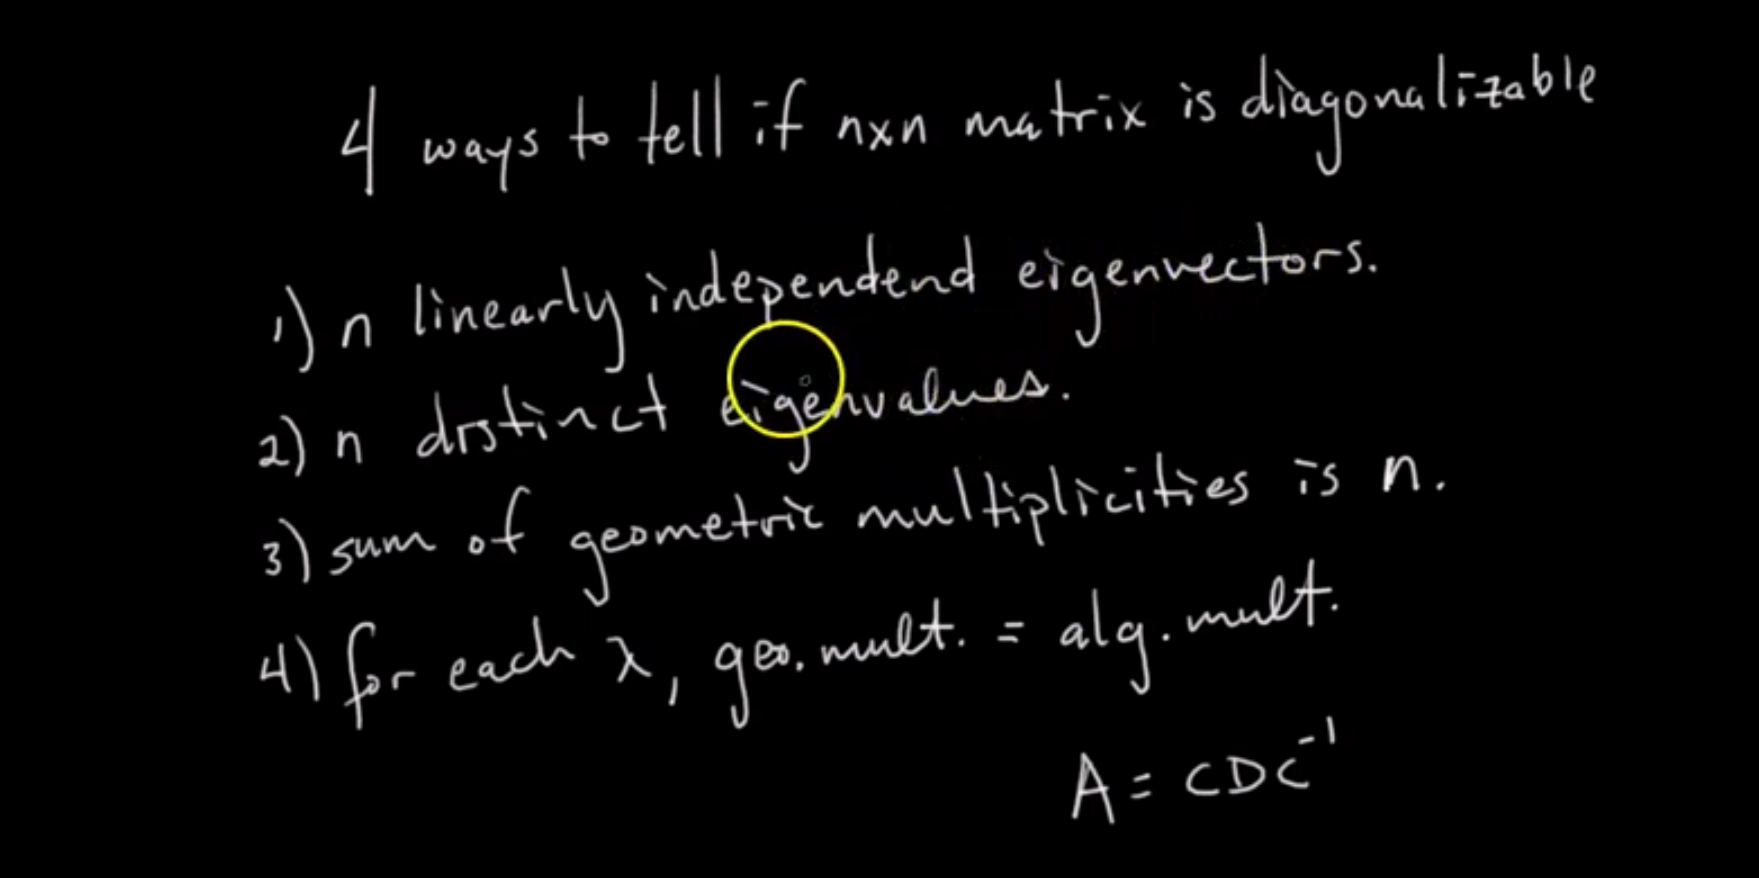 4 ways to tell if nxn matrix is diagonalizable
1) n linearly independend eigenvectors.
2) n distinct eigenvalues.
3) sum of geometric multiplicities is n.
4) for each λ, geo. mult. = alg. mult.
A = CDC⁻¹